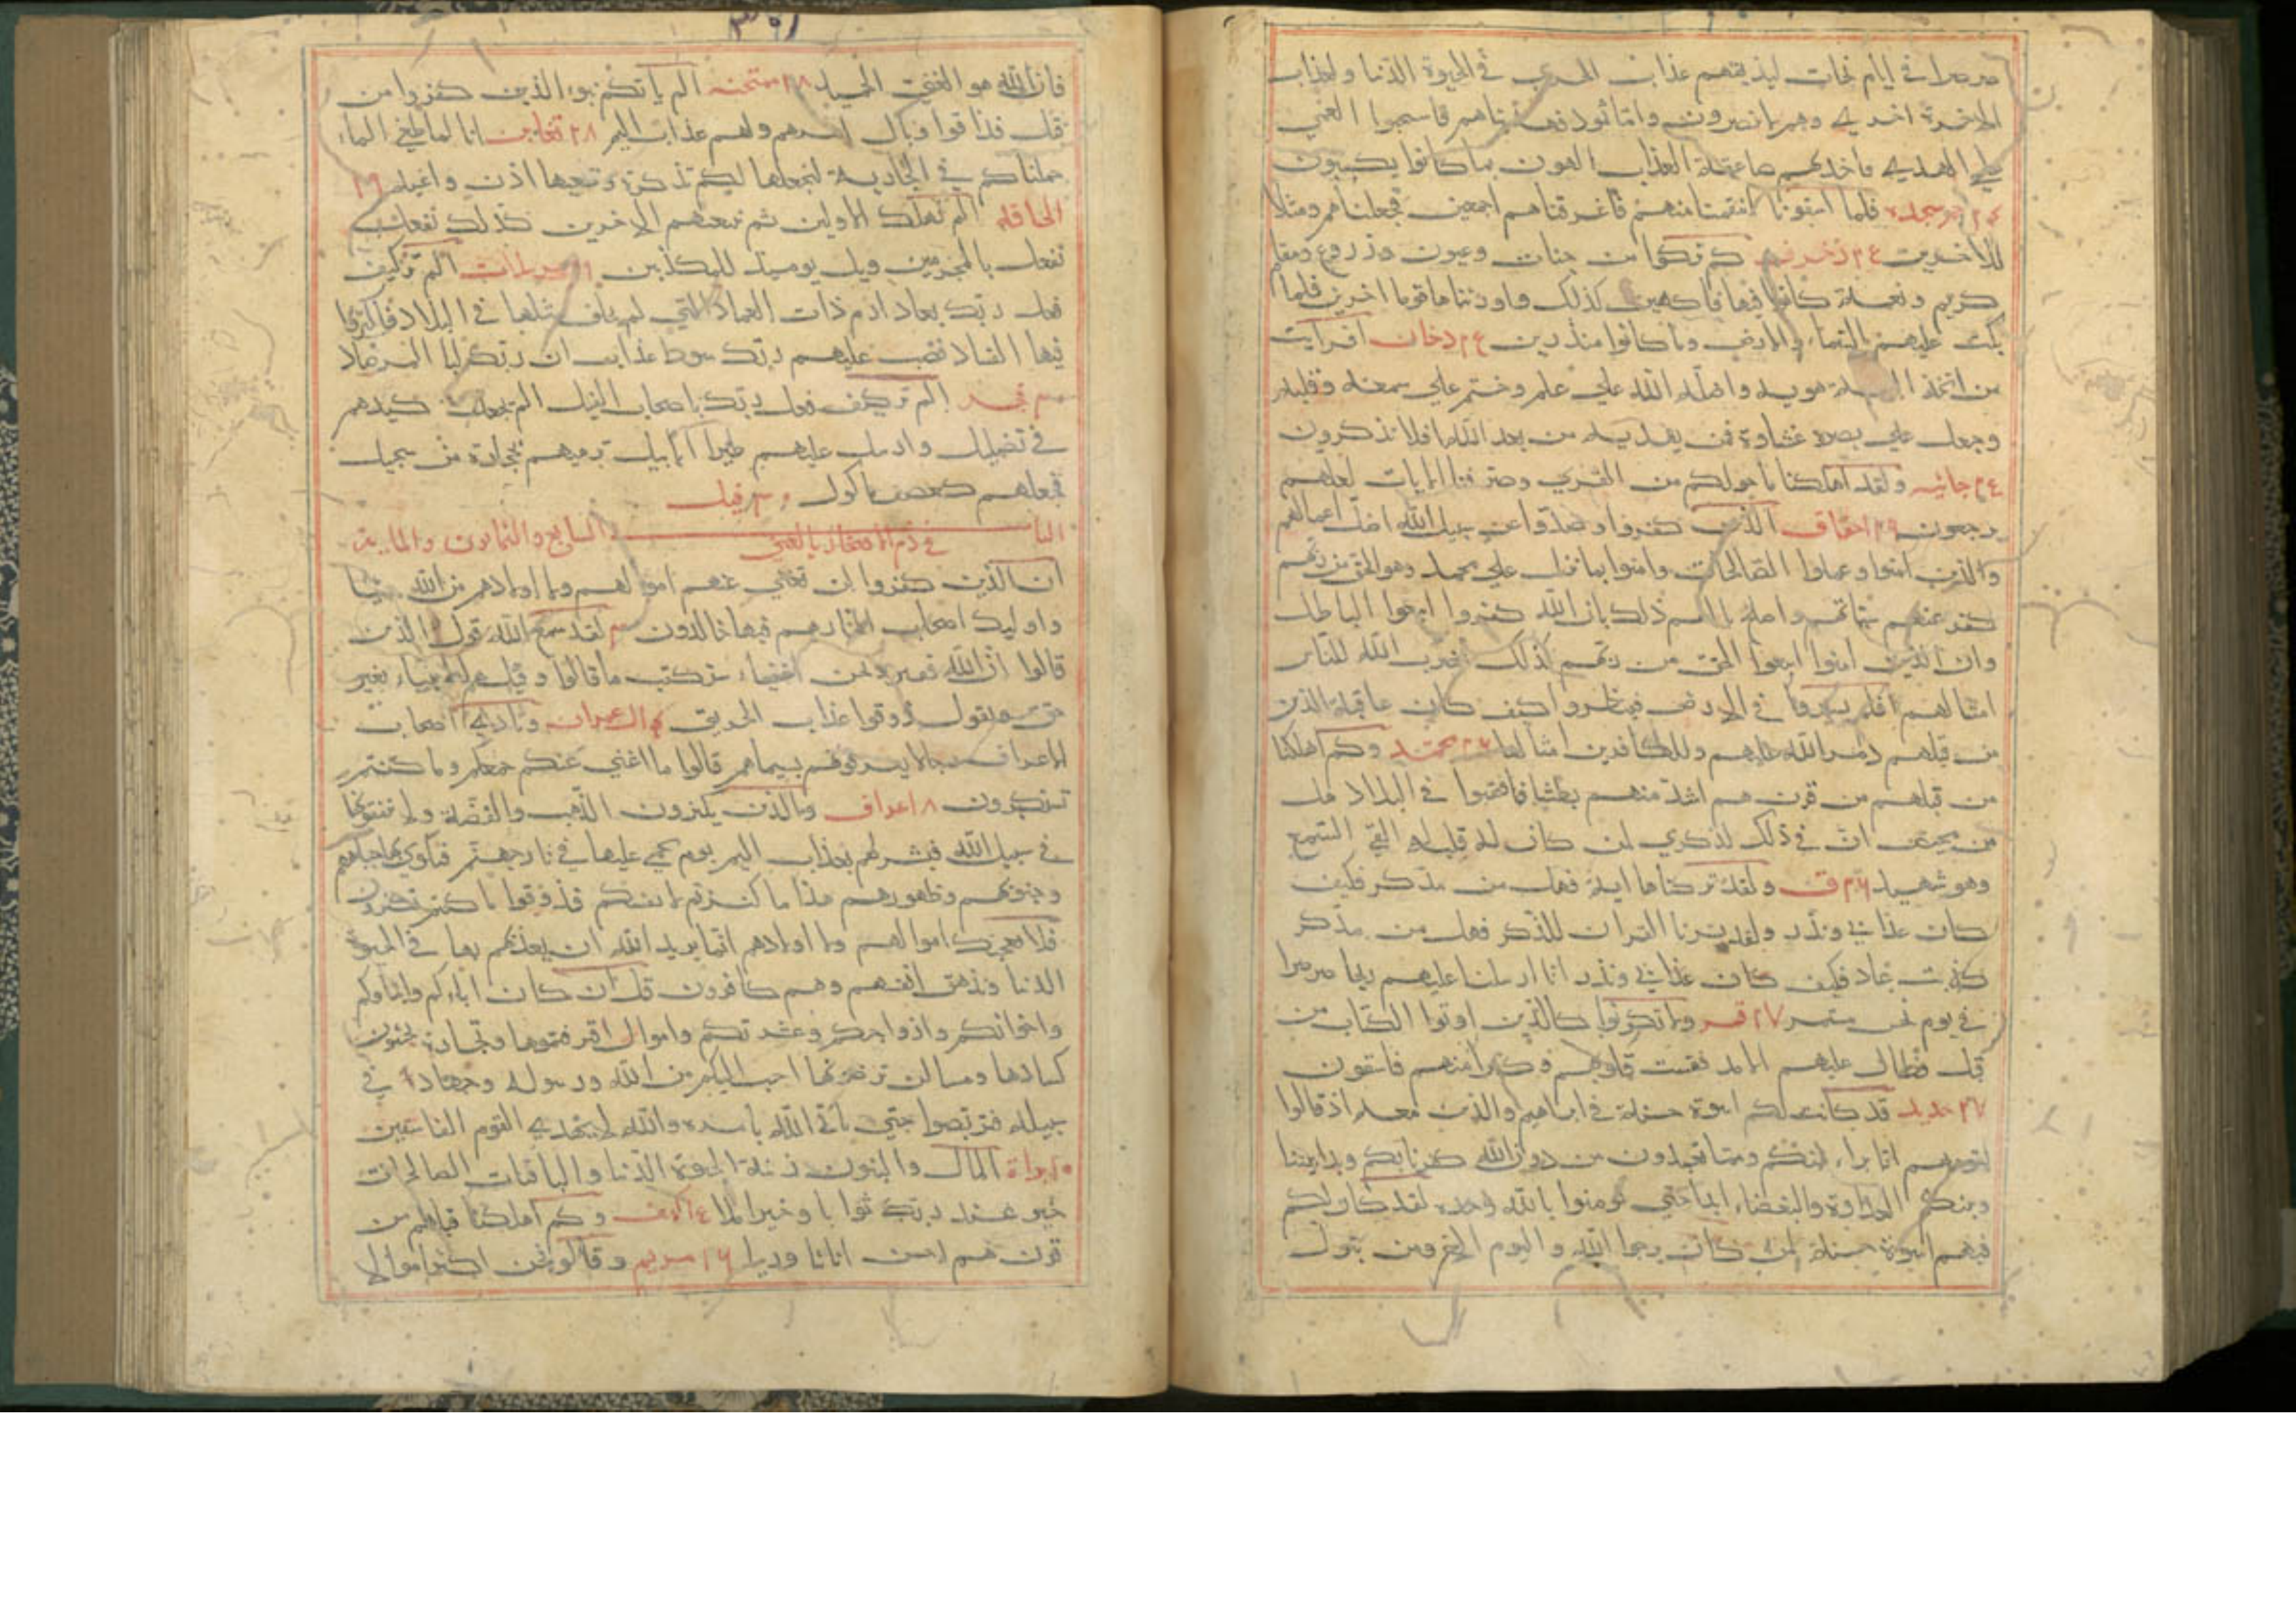 صرصرا في ايام نحسات ليذيقهم عذاب الخزي في الحيوة الدنيا ولعذاب
الاخرة اخزي وهم لا ينصرون واما ثمود فهديناهم فاستحبوا العمي
علي الهدي فاخذتهم صاعقة العذاب الهون بما كانوا يكسبون
٢٤ سجده فلما اسفونا انتقمنا منهم فاغرقناهم اجمعين فجعلناهم ومثلا
للاخرين ٢٤ زخرف كم تركوا من جنات وعيون وزروع ومقام
كريم ونعمة كانوا فيها فاكهين كذلك واورثناها قوما اخرين فلما
بكت عليهم السماء والارض وما كانوا منذرين ٢٤ دخان افرايت
من اتخذ الهه هويه واضله الله علي علم وختم علي سمعه وقلبه
وجعل علي بصره غشاوة فمن يهديه من بعد الله افلا تذكرون
٢٤ جاثيه ولقد اهلكنا ما حولكم من القري وصرفنا الايات لعلهم
يرجعون ٢٦ احقاف الذين كفروا وصدوا عن سبيل الله اضل اعمالهم
والذين امنوا وعملوا الصالحات وامنوا بما نزل علي محمد وهو الحق من ربهم
كفر عنهم سياتهم واصلح بالهم ذلك بان الله كفروا اتبعوا الباطل
وان الذين امنوا اتبعوا الحق من ربهم كذلك يضرب الله للناس
امثالهم افلم يسيروا في الارض فينظروا كيف كان عاقبة الذين
من قبلهم دمر الله عليهم وللكافرين امثالها ٢٦ محمد وكم اهلكنا
من قبلهم من قرن هم اشد منهم بطشا فنقبوا في البلاد هل
من محيص ان في ذلك لذكري لمن كان له قلب او القي السمع
وهو شهيد ٢٦ ق ولقد تركناها اية فهل من مدكر فكيف
كان عذابي ونذر ولقد يسرنا القران للذكر فهل من مدكر
كذبت عاد فكيف كان عذابي ونذر انا ارسلنا عليهم ريحا صرصرا
في يوم نحس مستمر ٢٧ قمر ولا تكونوا كالذين اوتوا الكتاب من
قبل فطال عليهم الامد فقست قلوبهم وكثير منهم فاسقون
٢٧ حديد قد كانت لكم اسوة حسنة في ابراهيم والذين معه اذ قالوا
لقومهم انا براء منكم ومما تعبدون من دون الله كفرنا بكم وبدا بيننا
وبينكم العداوة والبغضاء ابدا حتي تومنوا بالله وحده لقد كان لكم
فيهم اسوة حسنة لمن كان يرجوا الله واليوم الاخر ومن يتول
فان الله هو الغني الحميد ٢٨ ممتحنه الم ياتكم نبوء الذين كفروا من
قبل فذاقوا وبال امرهم ولهم عذاب اليم ٢٨ تغابن انا لما طغي الماء
حملناكم في الجارية لنجعلها لكم تذكرة وتعيها اذن واعية ٢٩
الحاقه الم نهلك الاولين ثم نتبعهم الاخرين كذلك نفعل
نفعل بالمجرمين ويل يوميذ للمكذبين ٢٩ مرسلات الم تر كيف
فعل ربك بعاد ارم ذات العماد التي لم يخلق مثلها في البلاد فاكثروا
فيها الفساد فصب عليهم ربك سوط عذاب ان ربك لبا المرصاد
٣٠ فجر الم تر كيف فعل ربك باصحاب الفيل الم يجعل كيدهم
في تضليل وارسل عليهم طيرا ابابيل ترميهم بحجارة من سجيل
فجعلهم كعصف ماكول ٣٠ فيل
البا في ذم الافتخار بالغني ب السابع والثمانون والماية
ان الذين كفروا لن تغني عنهم اموالهم ولا اولادهم من الله شيا
واوليك اصحاب النار هم فيها خالدون ٣ لقد سمع الله قول الذين
قالوا ان الله فقير ونحن اغنياء سنكتب ما قالوا وقتلهم الانبياء بغير
حق ونقول ذوقوا عذاب الحريق ٤ ال عمران ونادي اصحاب
الاعراف رجالا يعرفونهم بسيماهم قالوا ما اغني عنكم جمعكم وما كنتم
تستكبرون ٨ اعراف والذين يكنزون الذهب والفضة ولا ينفقونها
في سبيل الله فبشرهم بعذاب اليم يوم يحمي عليها في نار جهنم فتكوي بها جباههم
وجنوبهم وظهورهم هذا ما كنزتم لانفسكم فذوقوا ما كنتم تكنزون
فلا تعجبك اموالهم ولا اولادهم انما يريد الله ان يعذبهم بها في الحيوة
الدنيا وتزهق انفسهم وهم كافرون قل ان كان اباوكم وابناوكم
واخوانكم وازواجكم وعشيرتكم واموال اقترفتموها وتجارة تخشون
كسادها ومساكن ترضونها احب اليكم من الله ورسوله وجهاد في
سبيله فتربصوا حتي ياتي الله بامره والله لا يهدي القوم الفاسقين
١٠ براة المال والبنون زينة الحيوة الدنيا والباقيات الصالحات
خير عند ربك ثوابا وخير املا ١٥ كهف وكم اهلكنا قبلهم من
قرن هم احسن اثاثا ورءيا ١٦ مريم وقالوا نحن اكثر اموالا